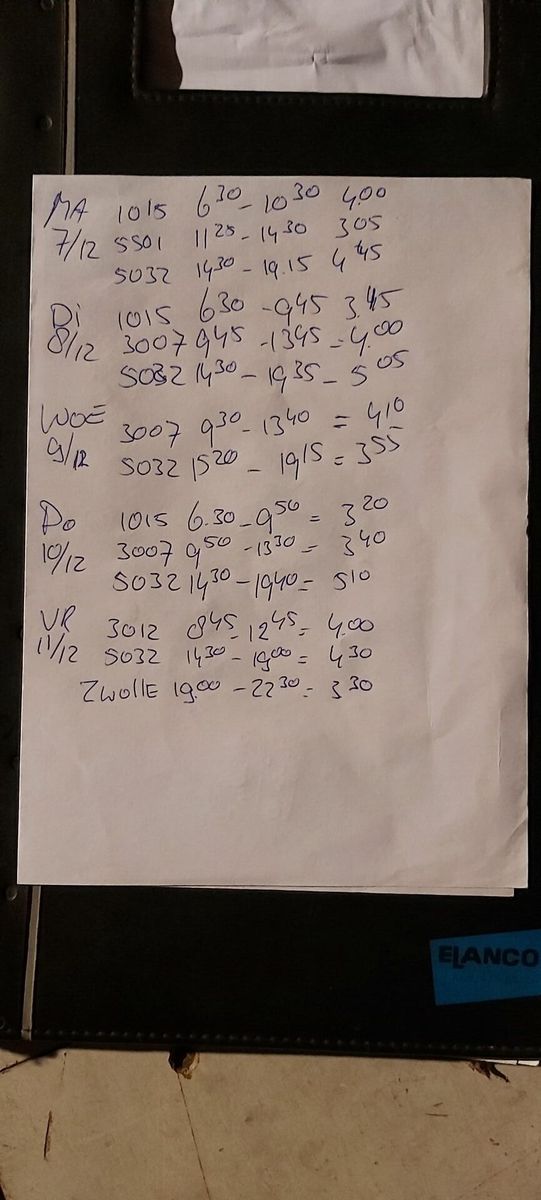 MA 1015 6 30 - 10 30 4.00
7/12 5501 11 25 - 14 30 3 05
5032 14 30 - 19.15 4 45
Di 1015 6 30 - 9 45 3 45
8/12 3007 9 45 - 13 45 = 4.00
5032 14 30 - 19 35 - 5 05
WOE 3007 9 30 - 13 40 = 4 10
9/12 5032 15 20 - 19 15 = 3 55
Do 1015 6.30 - 9 50 = 3 20
10/12 3007 9 50 - 13 30 = 3 40
5032 14 30 - 19 40 = 5 10
VR 3012 8 45 - 12 45 = 4.00
11/12 5032 14 30 - 19 00 = 4 30
ZWOLLE 19.00 - 22 30 = 3 30
ELANCO